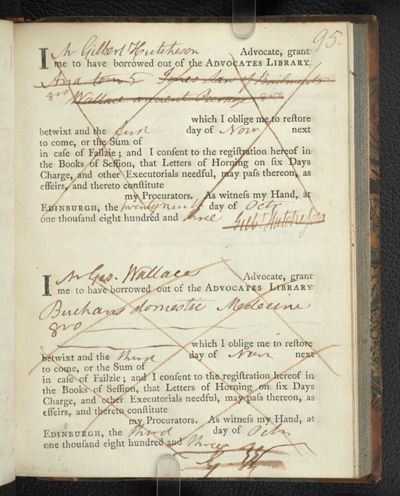 95.
I Mr Gilbert Hutcheson Advocate, grant
me to have borrowed out of the ADVOCATES LIBRARY
tom 5 Jones Law of Bailments
8vo Wallace ancient Peerage 8vo
which I oblige me to restore
betwixt and the first day of Novr next
to come, or the Sum of
in case of Failzie; and I consent to the registration hereof in
the Books of Session, that Letters of Horning on six Days
Charge, and other Executorials needful, may pass thereon, as
effeirs, and thereto constitute
my Procurators. As witness my Hand, at
EDINBURGH, the twenty ninth day of Octr
one thousand eight hundred and three Gilbt Hutcheson
I Mr Geo. Wallace Advocate, grant
me to have borrowed out of the ADVOCATES LIBRARY
Buchans domestic Medecine
8vo
which I oblige me to restore
betwixt and the third day of Novr next
to come, or the Sum of
in case of Failzie; and I consent to the registration hereof in
the Books of Session, that Letters of Horning on six Days
Charge, and other Executorials needful, may pass thereon, as
effeirs, and thereto constitute
my Procurators. As witness my Hand, at
EDINBURGH, the third day of Octr
one thousand eight hundred and three